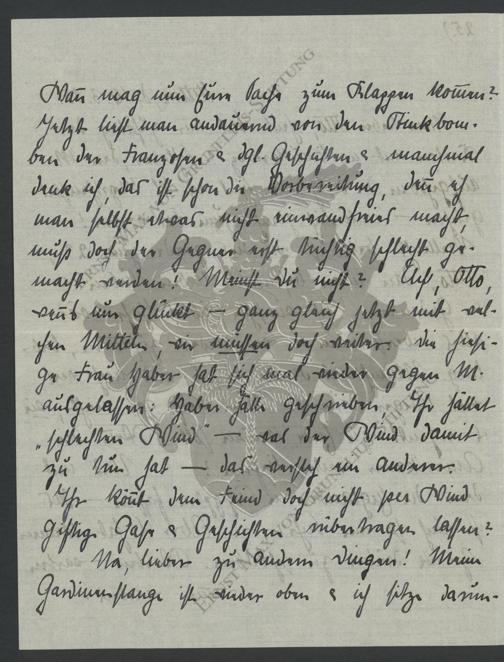 Wañ mag nun Eure Sache zum Klappen kom̄en?
Jetzt liest man andauernd von den Stinkbom-
ben der Franzosen & dgl. Geschichten & manchmal
denk ich, das ist schon die Vorbereitung, deñ eh
man selbst etwas nicht einwandfreies macht,
muß doch der Gegner erst tüchtig schlecht ge-
macht werden! Meinst Du nicht? Ach, Otto,
weñ's nur glückt — ganz gleich jetzt mit wel-
chen Mitteln, wir müssen doch weiter. Die hiesi-
ge Frau Haber hat sich mal wieder gegen M.
ausgelassen: Haber hätte geschrieben, Ihr hättet
"schlechten Wind" — was der Wind damit
zu tun hat — das versteh ein anderer.
Ihr köñt dem Feind doch nicht per Wind
giftige Gase & Geschichten rübertragen lassen?
Na, lieber zu andern Dingen! Meine
Gardinenstange ist wieder oben & ich sitze darun-